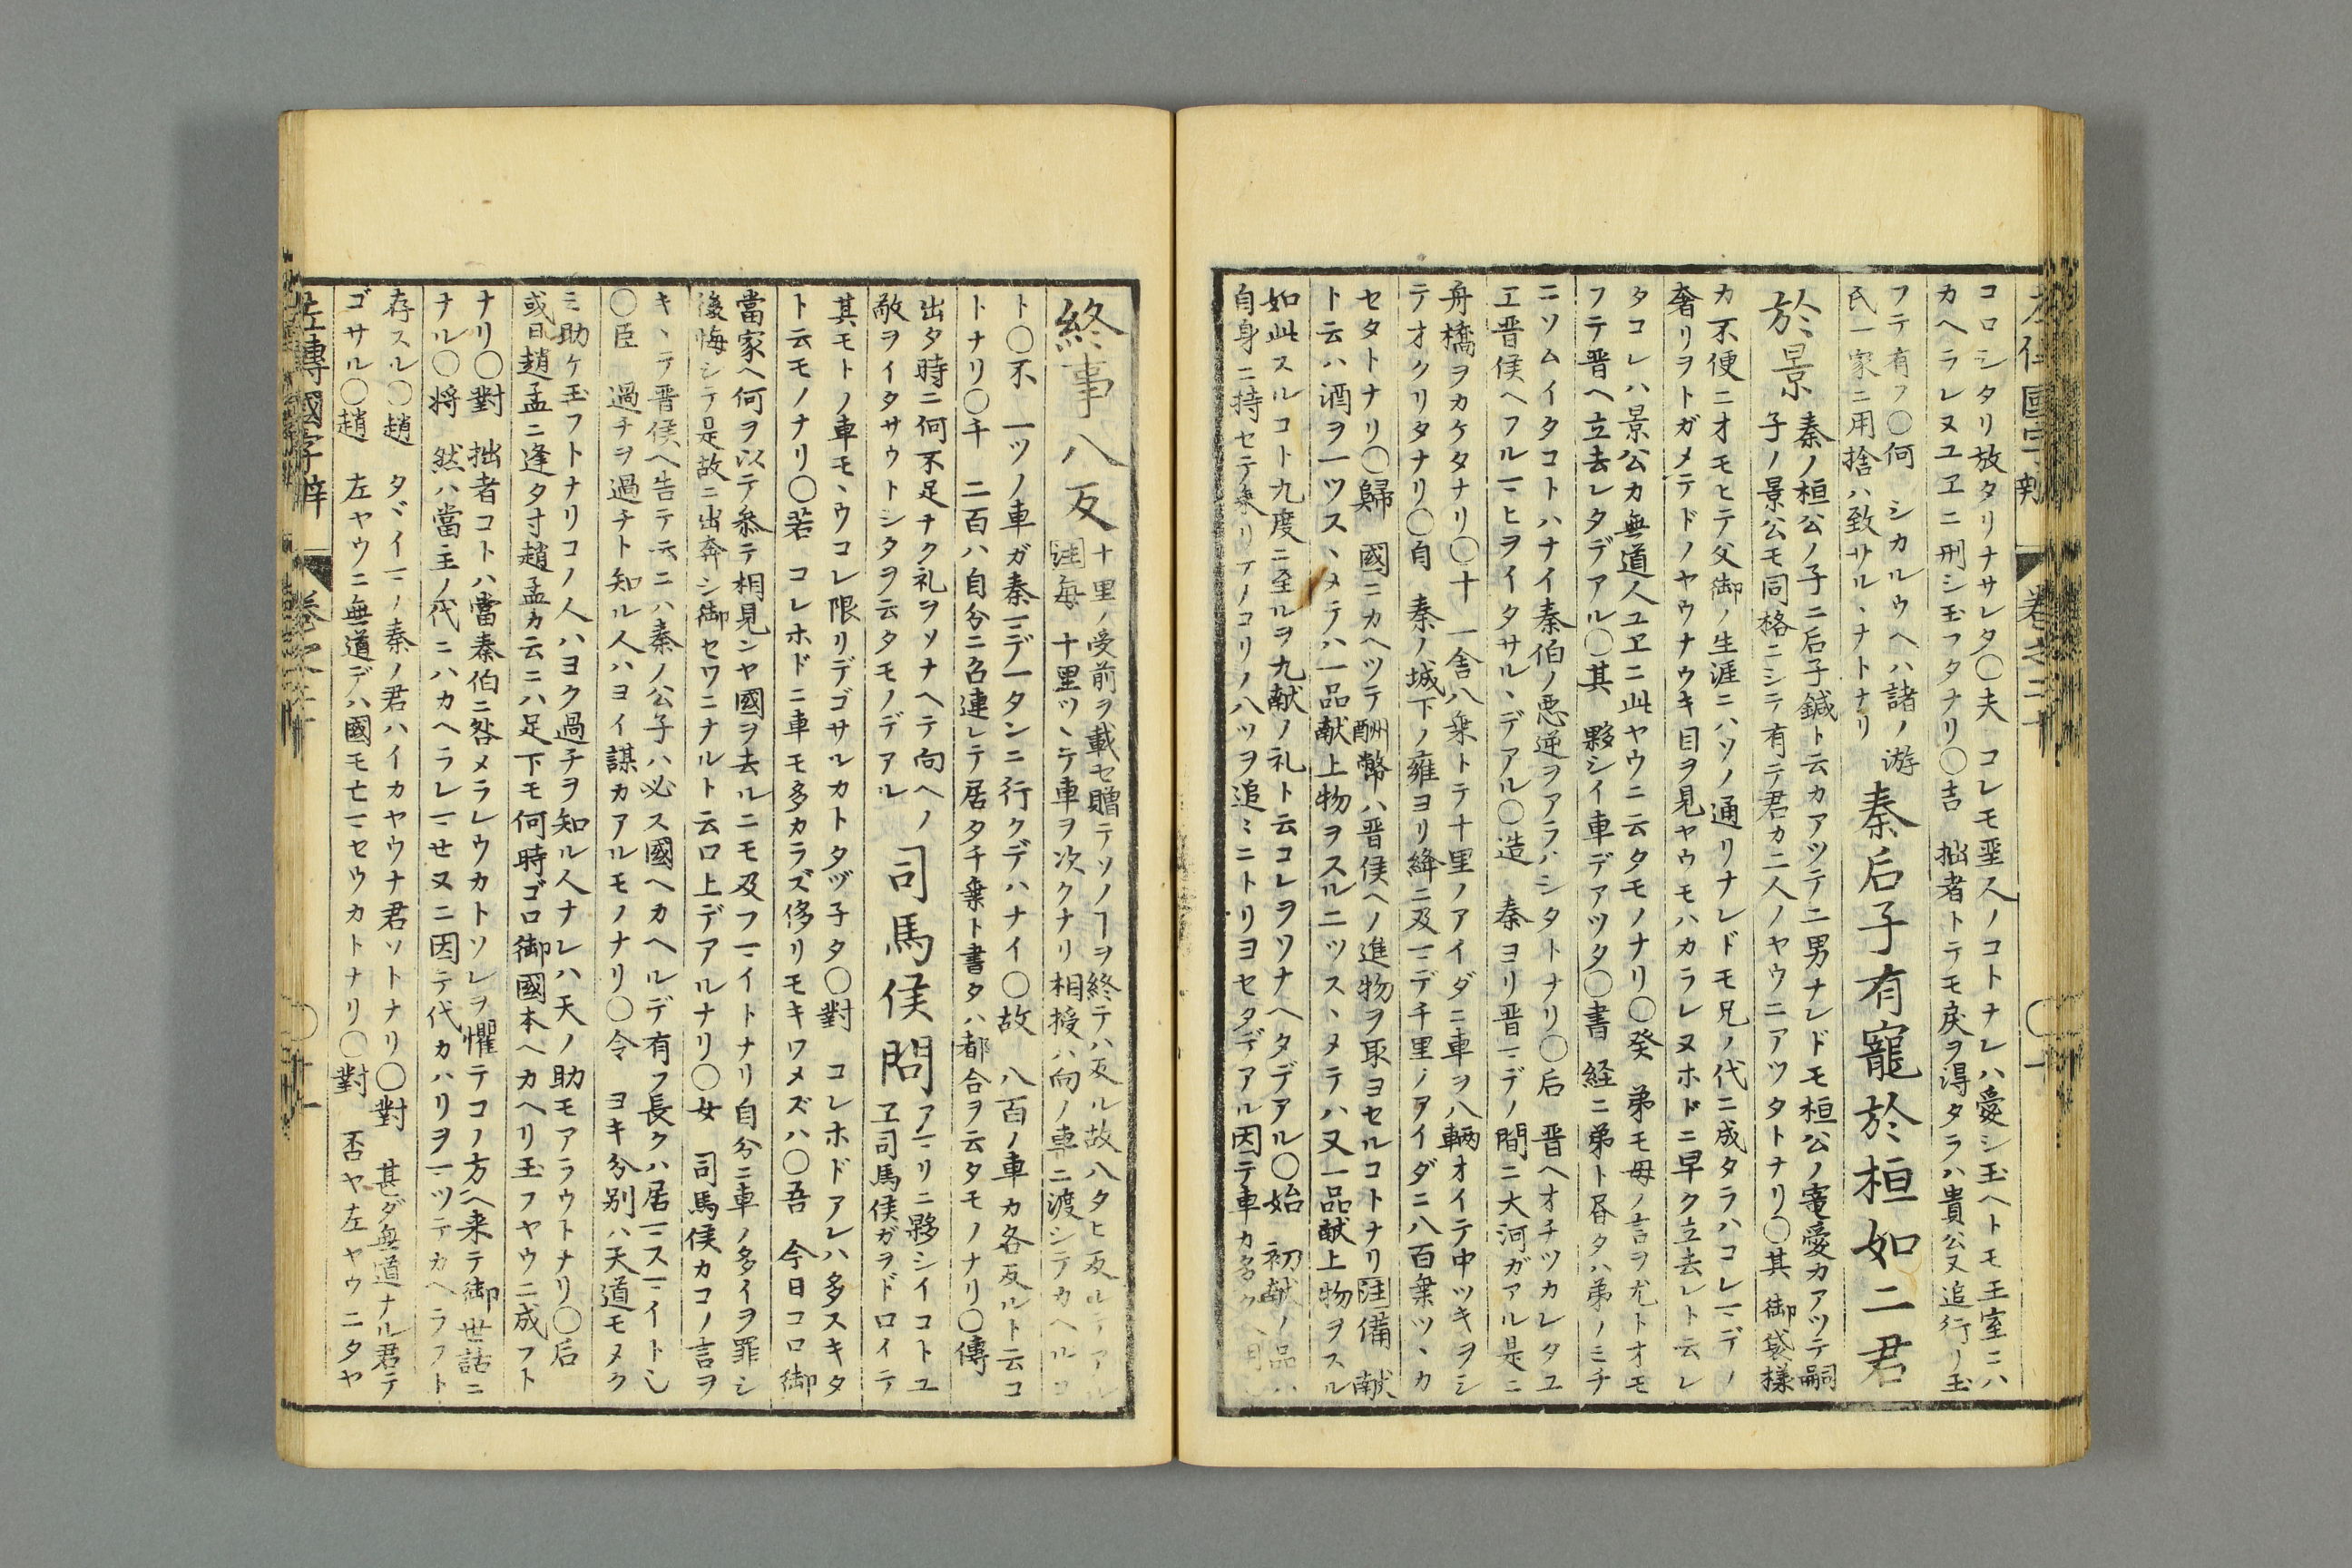 コロシタリ放タリナサレタ○夫　コレモ聖人ノコトナレハ愛シ玉ヘトモ王室ニハ
カヘラレヌユヱニ刑シ玉フタナリ○吉　拙者トテモ戻ヲ得タラハ貴公又追行リ玉
フテ有フ○何　シカルウヘハ諸ノ游
氏一家ニ用捨ハ致サル、ナトナリ
秦后子有寵於桓如二君
於景
秦ノ桓公ノ子ニ后子鍼ト云カアツテ二男ナレドモ桓公ノ寵愛カアツテ嗣
子ノ景公モ同格ニシテ有テ君カ二人ノヤウニアツタトナリ○其　御袋様
カ不便ニオモヒテ父御ノ生涯ニハソノ通リナレドモ兄ノ代ニ成タラハコレマデノ
奢リヲトガメテドノヤウナウキ目ヲ見ヤウモハカラレヌホドニ早ク立去レト云レ
タコレハ景公カ無道人ユヱニ此ヤウニ云タモノナリ○癸　弟モ母ノ言ヲ尤トオモ
フテ晋ヘ立去レタデアル○其　夥シイ車デアツタ○書　経ニ弟ト昏タハ弟ノミチ
ニソムイタコトハナイ秦伯ノ悪逆ヲアラハシタトナリ○后　晋ヘオチツカレタユ
エ晋侯ヘフルマヒヲイタサル、デアル○造　秦ヨリ晋マデノ間ニ大河ガアル是ニ
舟橋ヲカケタナリ○十　一舎八乗トテ十里ノアイダニ車ヲ八輌オイテ中ツキヲシ
テオクリタナリ○自　秦ノ城下ノ雍ヨリ絳ニ及マデ千里ノアイダニ八百乗ツ、カ
セタトナリ○歸　國ニカヘツテ酬幣ハ晋侯ヘノ進物ヲ取ヨセルコトナリ注備　献
ト云ハ酒ヲ一ツス、メテハ一品献上物ヲスル二ツス、メテハ又一品献上物ヲスル
如此スルコト九度ニ至ルヲ九献ノ礼ト云コレヲソナヘタデアル○始　初献ノ品ハ
自身ニ持セテ来リアノコリノ八ツヲ追ミニトリヨセタデアル因テ車カ多ク
終事八反
十里ノ受前ヲ載セ贈テソノヿヲ終テハ反ル故八タヒ反ルデアル
注毎　十里ツ、テ車ヲ次クナリ相授ハ向ノ車ニ渡シテカヘルコ
ト○不　一ツノ車ガ秦マデ一タンニ行クデハナイ○故　八百ノ車カ各反ルト云コ
トナリ○千　二百ハ自分ニ召連レテ居タ千乗ト書タハ都合ヲ云タモノナリ○傳
出タ時ニ何不足ナク礼ヲソナヘテ向ヘノ
敵ヲイタサウトシタヲ云タモノデアル
司馬侯問
アマリニ夥シイコトユ
ヱ司馬侯ガヲドロイテ
其モトノ車モ、ウコレ限リデゴサルカトタヅ子タ○對　コレホドアレハ多スキタ
ト云モノナリ○若　コレホドニ車モ多カラズ侈リモキワメズハ○吾　今日コロ御
當家ヘ何ヲ以テ参テ相見ンヤ國ヲ去ルニモ及フマイトナリ自分ニ車ノ多イヲ罪シ
後悔シテ是故ニ出奔シ御セワニナルト云口上デアルナリ○女　司馬侯カコノ言ヲ
キ、テ晋侯ヘ告テ云ニハ秦ノ公子ハ必ス國ヘカヘルデ有フ長クハ居マスマイトし
○臣　過チヲ過チト知ル人ハヨイ謀カアルモノナリ○令　ヨキ分別ハ天道モヌク
ミ助ケ玉フトナリコノ人ハヨク過チヲ知ル人ナレハ天ノ助モアラウトナリ○后
或曰趙孟ニ逢タ寸趙孟カ云ニハ足下モ何時ゴロ御國本ヘカヘリ玉フヤウニ成フト
ナリ○對　拙者コトハ當秦伯ニ咎メラレウカトソレヲ懼テコノ方ヘ来テ御世話ニ
ナル○将　然ハ當主ノ代ニハカヘラレマせヌニ因テ代カハリヲマツテカヘラフト
存スル○趙　タヾイマノ秦ノ君ハイカヤウナ君ソトナリ○對　甚ダ無道ナル君テ
ゴサル○趙　左ヤウニ無道デハ國モ亡マセウカトナリ○對　否ヤ左ヤウニタヤ
左傳國字辯　巻之二十　○十一